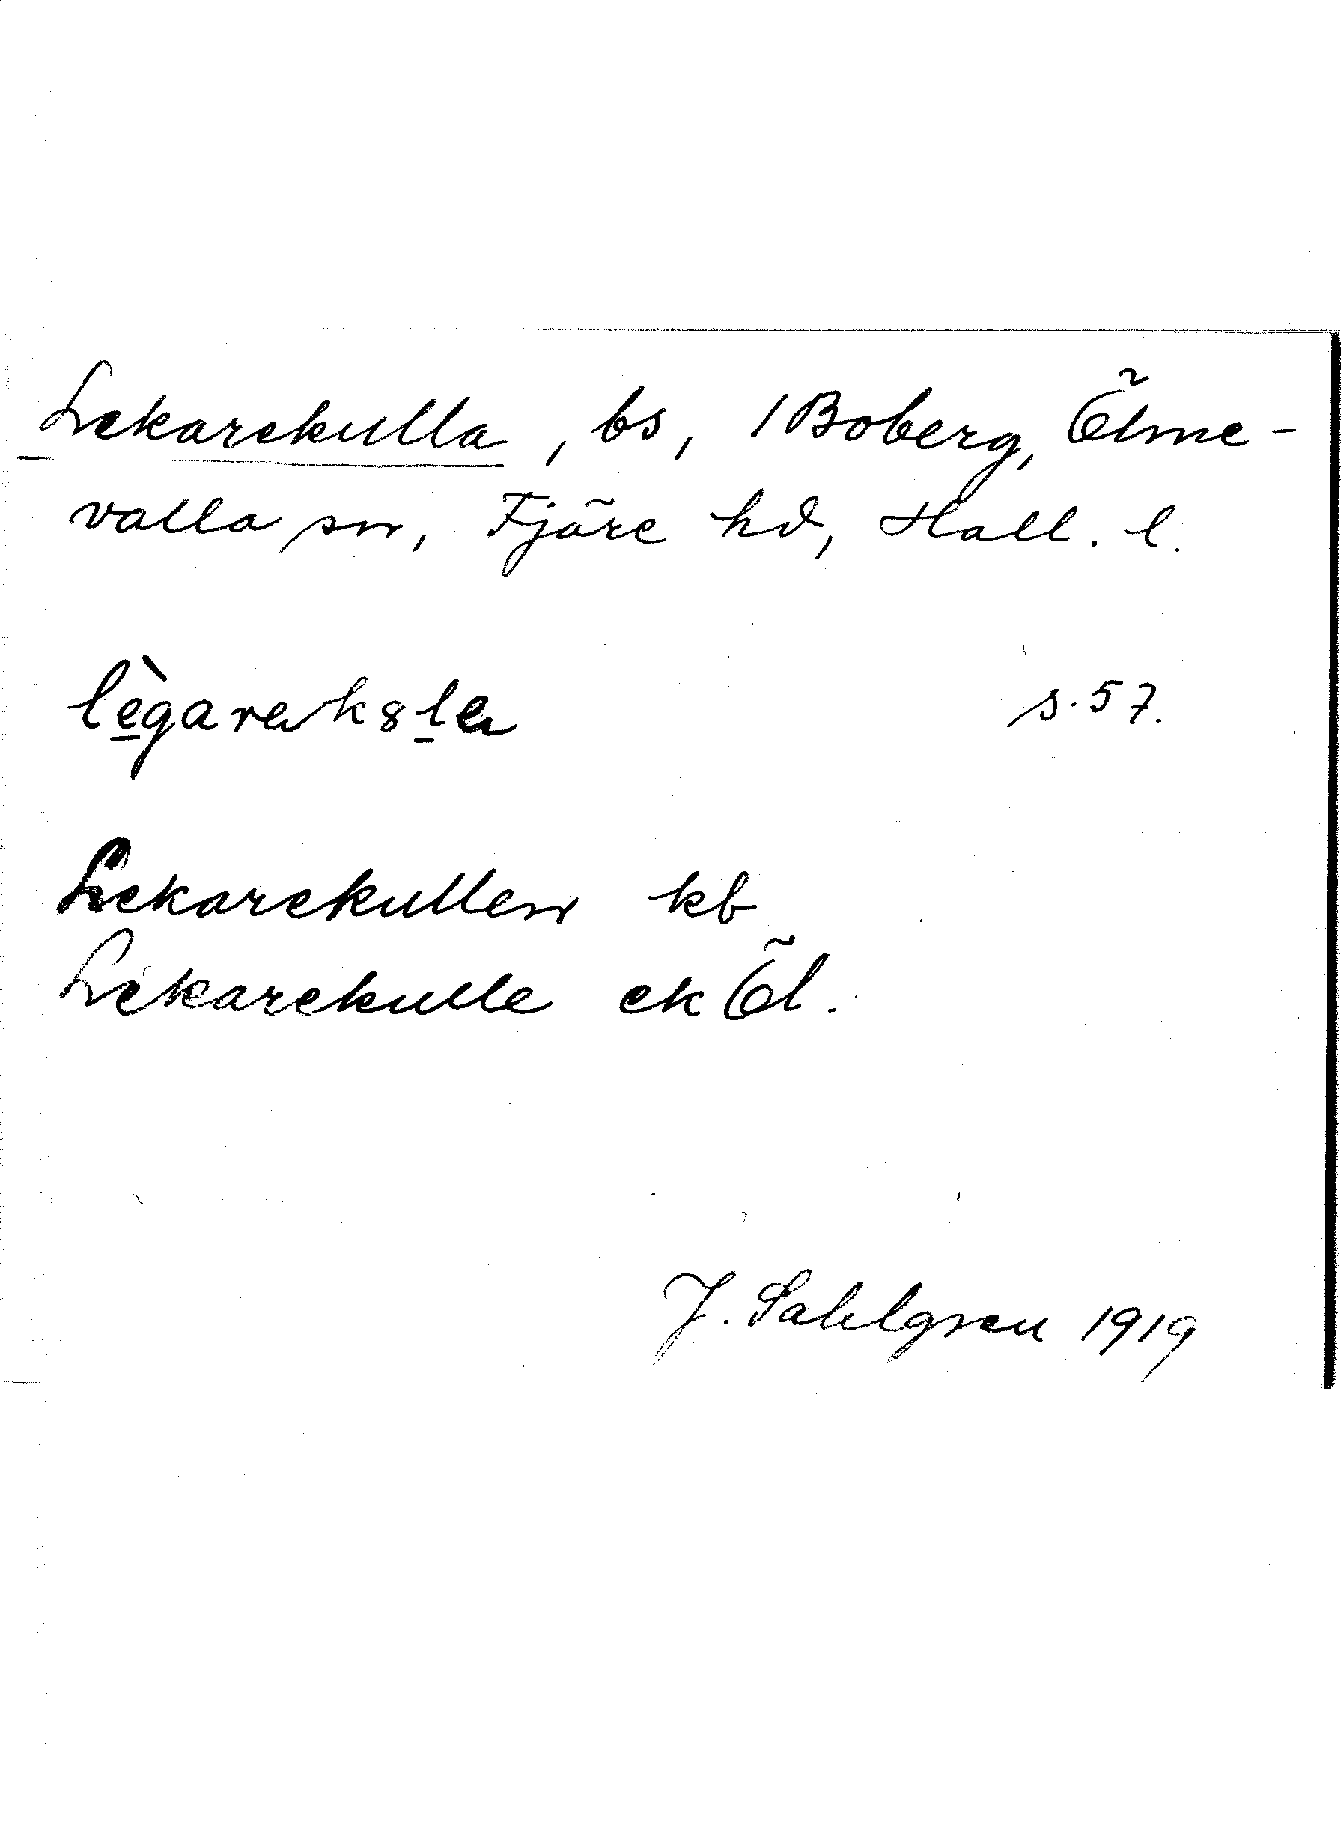 Lekarekulla, bs, 1 Boberg, Ölme-
valla sn, Fjäre hd, Hall. l.
s. 57.
Lekarekullen kb
Lekarekulle ek Öl.
J. Sahlgren 1919